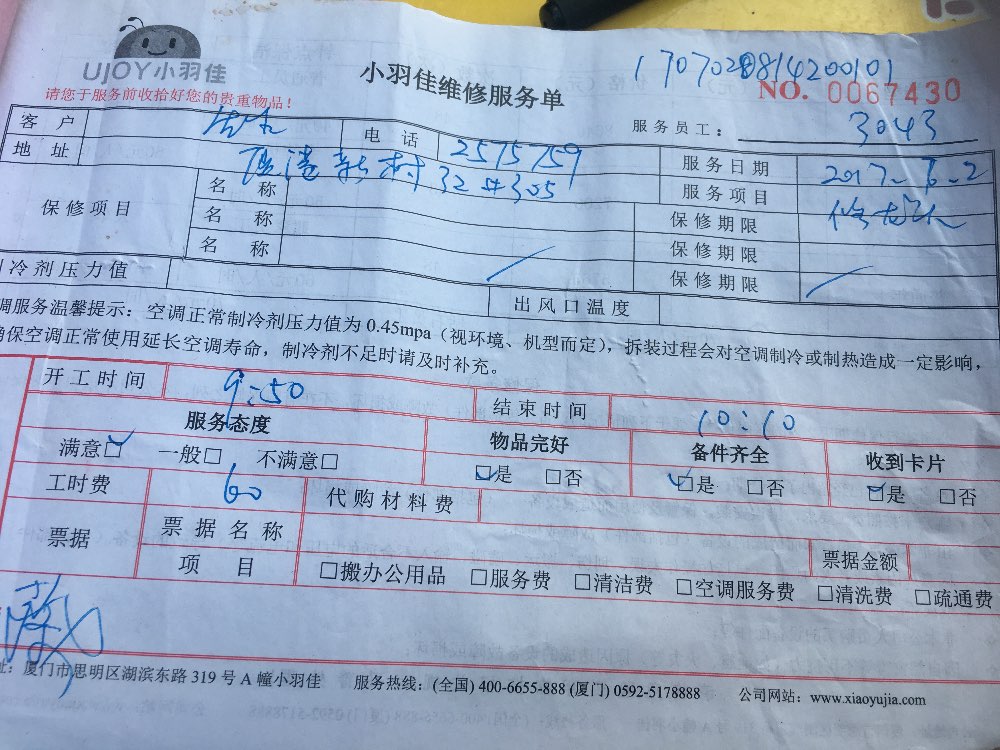 UjOY小羽佳
请您于服务前收拾好您的贵重物品！
小羽佳维修服务单
NO. 0067430
服务员工： 3043
客户 电话 2575759 服务日期
地址 新村32#305 服务项目 修龙头
保修项目 名称 保修期限
名称 保修期限
名称 保修期限
冷剂压力值 出风口温度
调服务温馨提示：空调正常制冷剂压力值为 0.45mpa（视环境、机型而定），拆装过程会对空调制冷或制热造成一定影响，
确保空调正常使用延长空调寿命，制冷剂不足时请及时补充。
开工时间 9:50 结束时间 10:10
服务态度 物品完好 备件齐全 收到卡片
满意☑ 一般□ 不满意□ ☑是 □否 ☑是 □否 ☑是 □否
工时费 60 代购材料费
票据 票据名称 票据金额
项目 □搬办公用品 □服务费 □清洁费 □空调服务费 □清洗费 □疏通费
址：厦门市思明区湖滨东路 319 号 A 幢小羽佳 服务热线：(全国) 400-6655-888 (厦门) 0592-5178888 公司网站：www.xiaoyujia.com